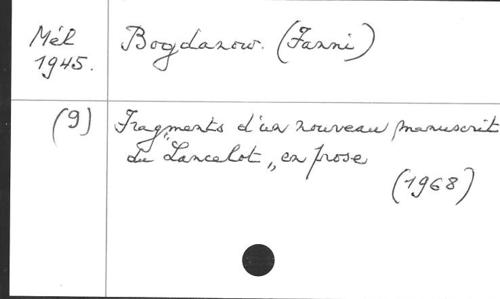 Mél
1945.
Bogdanow. (Fanni)
(9)
Fragments d'un nouveau manuscrit
du "Lancelot" en prose
(1968)